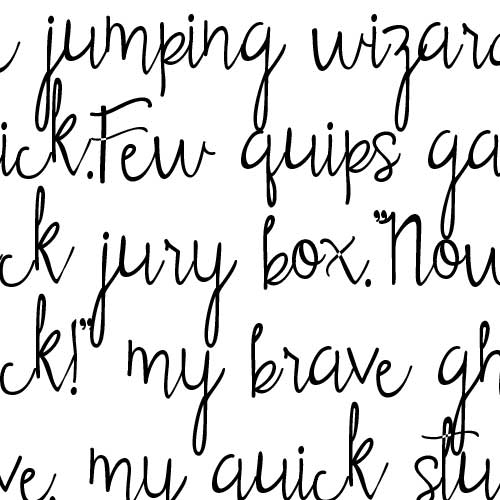 jumping wizard
ick. Few quips ga
ck jury box." Now
ck!" my brave gh
ve. my quick stu